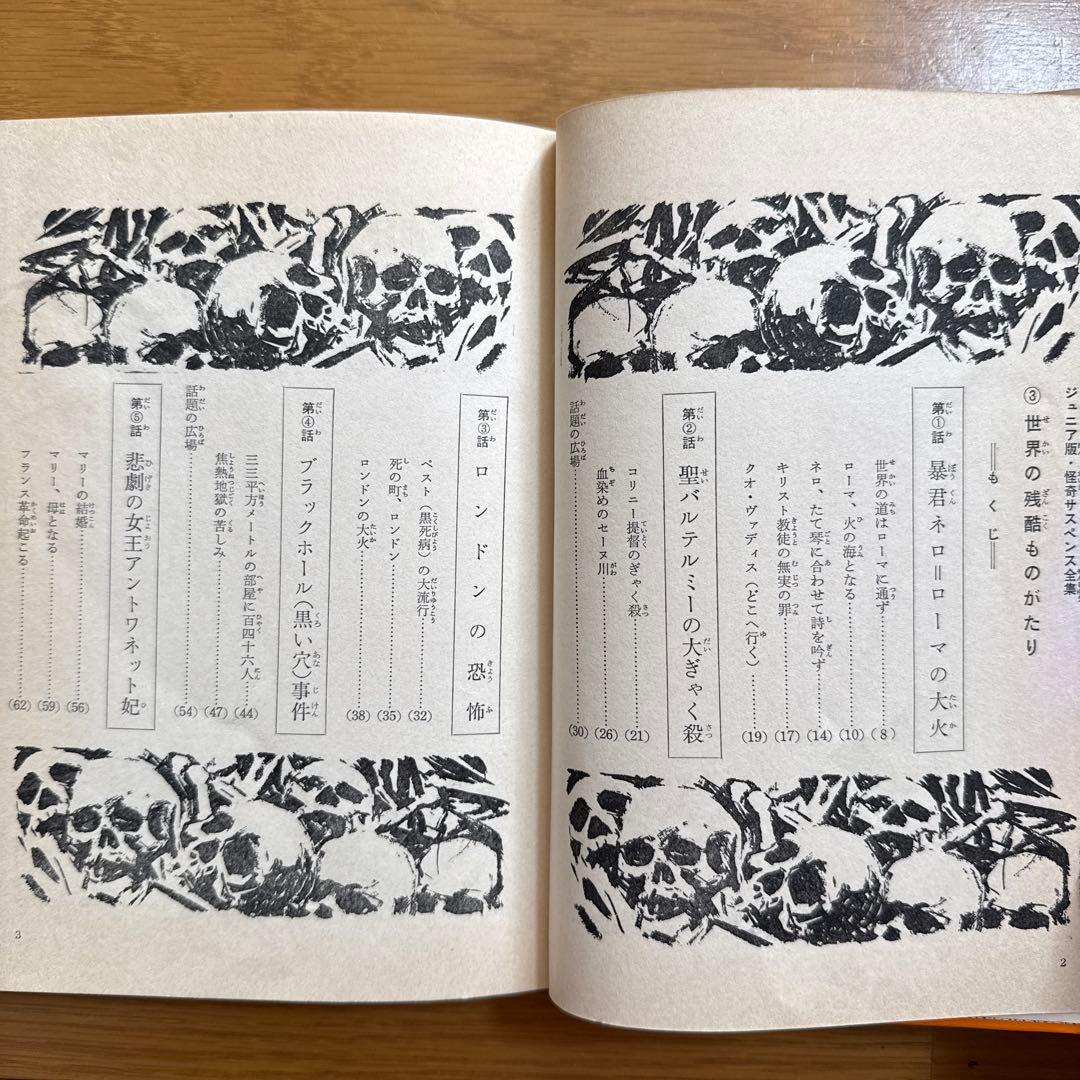 ジュニア版・怪奇サスペンス全集
③世界の残酷ものがたり
＝もくじ＝
第①話 暴君ネロ＝ローマの大火
世界の道はローマに通ず……(8)
ローマ、火の海となる……(10)
ネロ、たて琴に合わせて詩を吟ず……(14)
キリスト教徒の無実の罪……(17)
クオ・ヴァディス（どこへ行く）……(19)
第②話 聖バルテルミーの大ぎゃく殺
コリニー提督のぎゃく殺……(21)
血染めのセーヌ川……(26)
話題の広場……(30)
2
第③話 ロンドンの恐怖
ペスト（黒死病）の大流行……(32)
死の町、ロンドン……(35)
ロンドンの大火……(38)
第④話 ブラックホール（黒い穴）事件
三三平方メートルの部屋に百四十六人……(44)
焦熱地獄の苦しみ……(47)
話題の広場……(54)
第⑤話 悲劇の女王アントワネット妃
マリーの結婚……(56)
マリー、母となる……(59)
フランス革命起こる……(62)
3